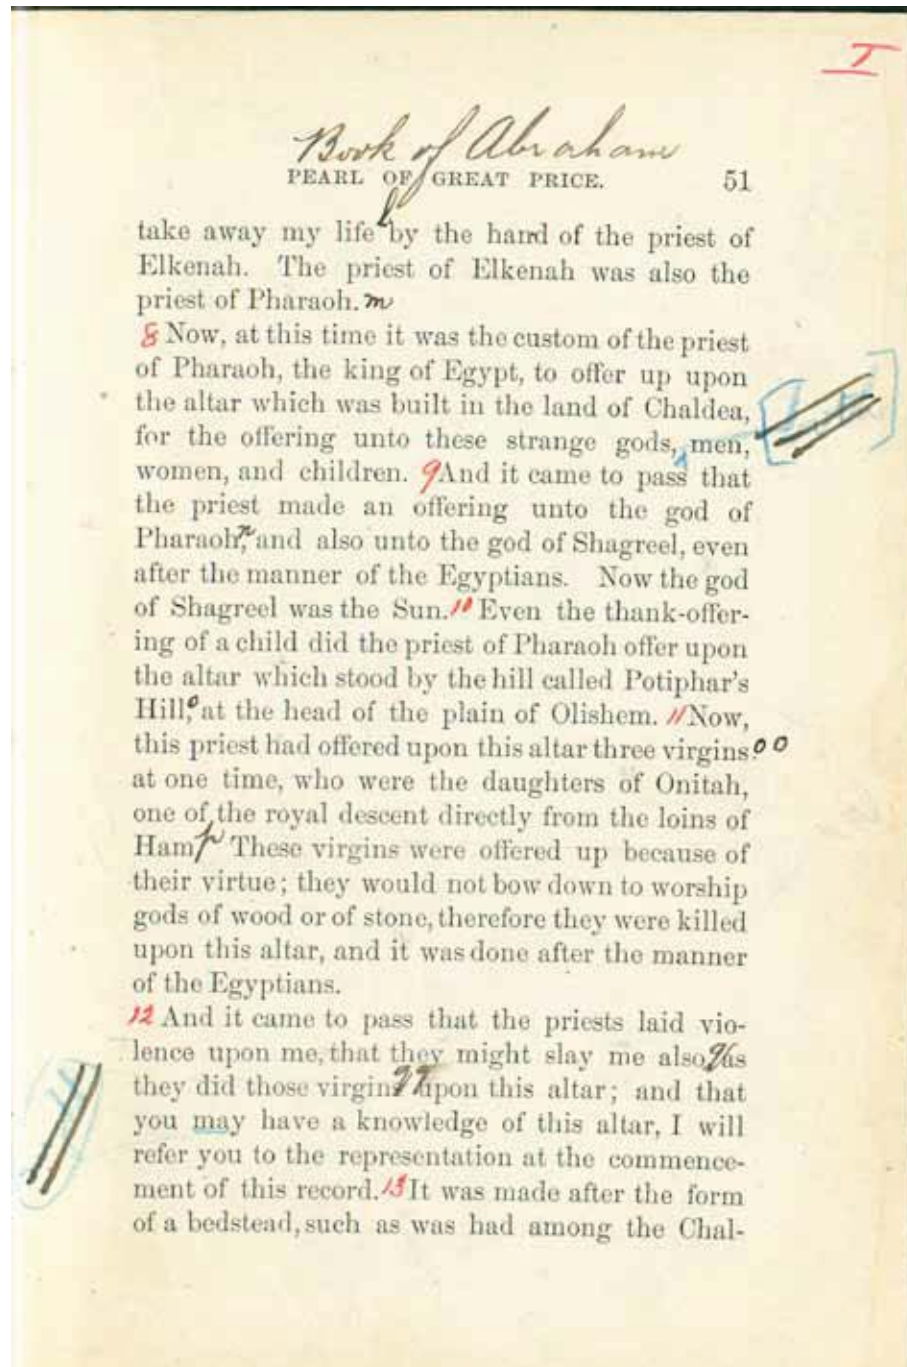 I
Book of Abraham
PEARL OF GREAT PRICE. 51
take away my life l by the hand of the priest of
Elkenah. The priest of Elkenah was also the
priest of Pharaoh. m
8 Now, at this time it was the custom of the priest
of Pharaoh, the king of Egypt, to offer up upon
the altar which was built in the land of Chaldea,
for the offering unto these strange gods, men,
women, and children. 9 And it came to pass that
the priest made an offering unto the god of
Pharaoh, n and also unto the god of Shagreel, even
after the manner of the Egyptians. Now the god
of Shagreel was the Sun. 10 Even the thank-offer-
ing of a child did the priest of Pharaoh offer upon
the altar which stood by the hill called Potiphar's
Hill, o at the head of the plain of Olishem. 11 Now,
this priest had offered upon this altar three virgins oo
at one time, who were the daughters of Onitah,
one of the royal descent directly from the loins of
Ham. p These virgins were offered up because of
their virtue; they would not bow down to worship
gods of wood or of stone, therefore they were killed
upon this altar, and it was done after the manner
of the Egyptians.
12 And it came to pass that the priests laid vio-
lence upon me, that they might slay me also, q as
they did those virgins upon this altar; and that
you may have a knowledge of this altar, I will
refer you to the representation at the commence-
ment of this record. 13 It was made after the form
of a bedstead, such as was had among the Chal-